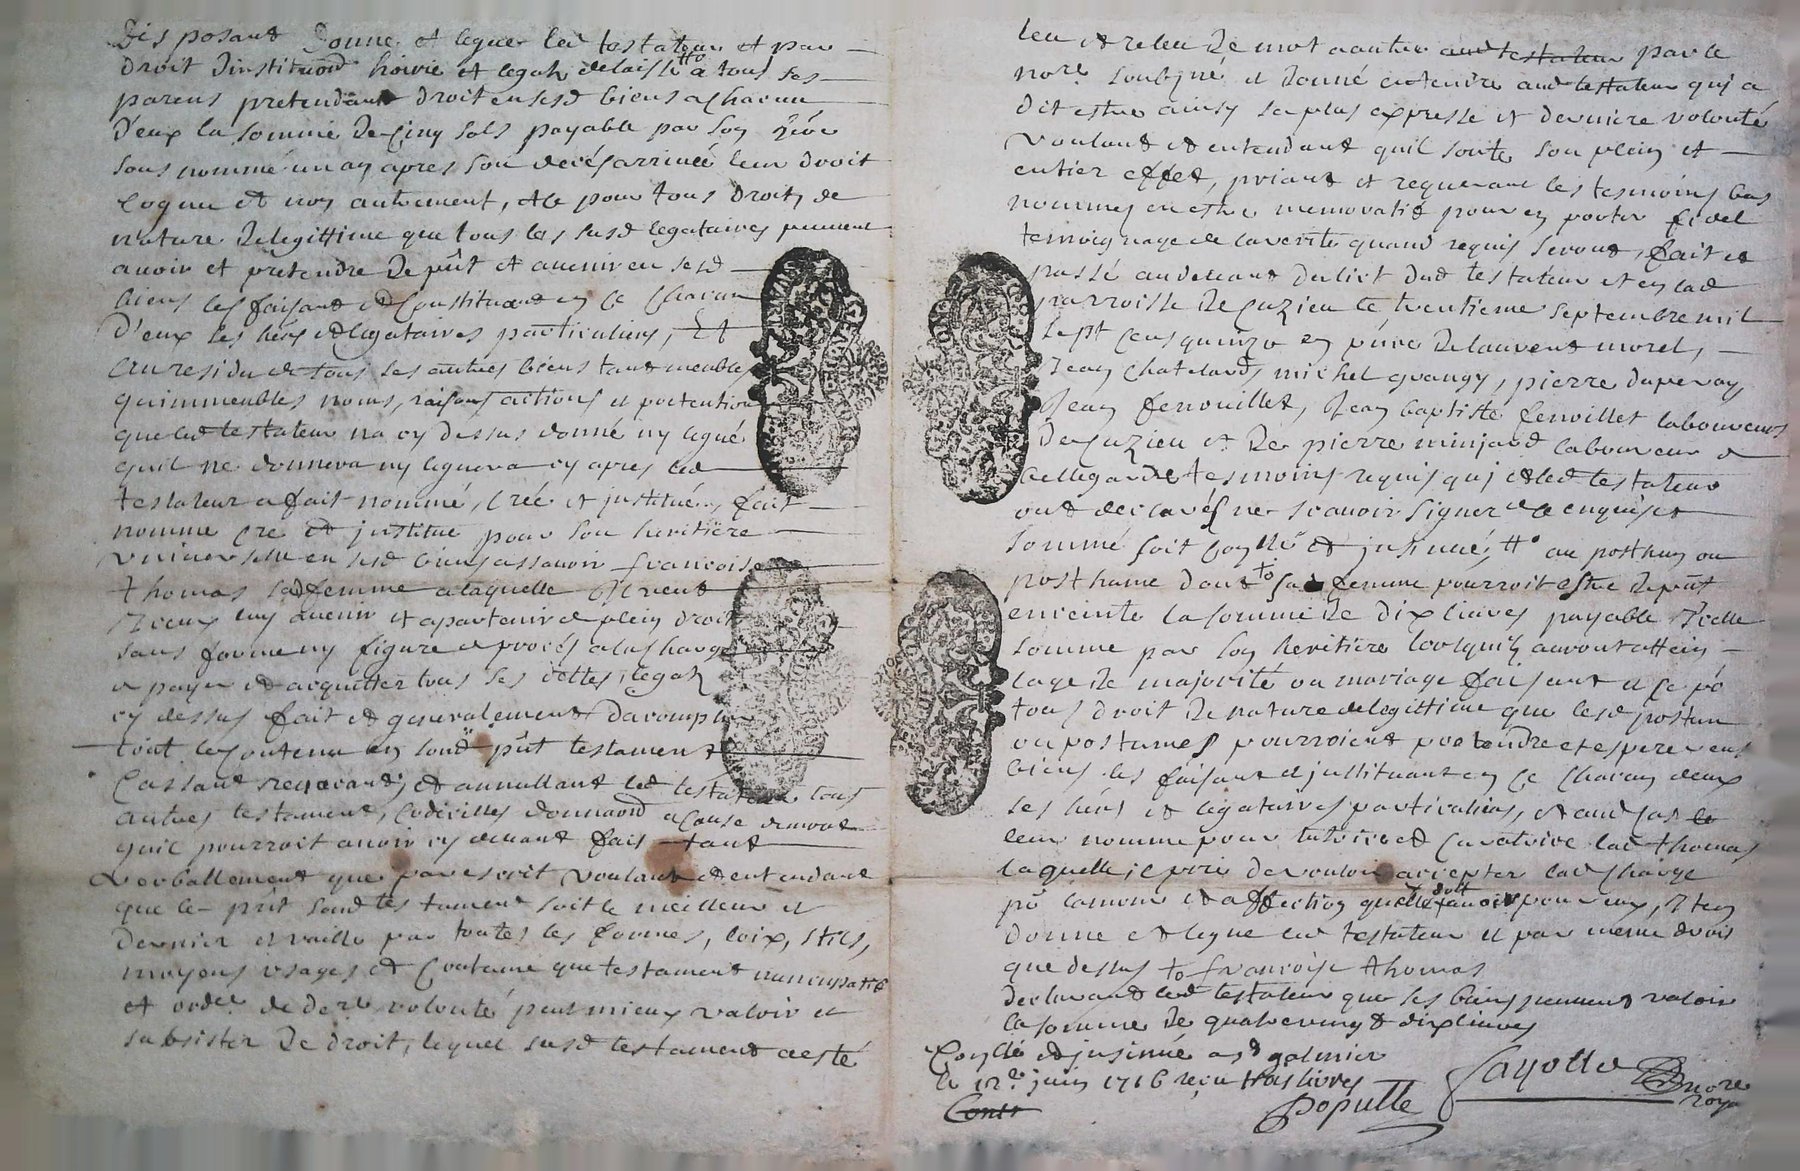 disposant donne et legue led testateur et par
droit dinstituõn hoirie et legat delaissé # a tous ses
parens pretendant droit en sesd biens a chacun
d'eux la somme de cinq sols payable par son
sous nommé un an apres son decés arrivée leur droit
legue et non autrement, et ce pour tous droits de
nature de legittime que tous les susd legataires peuvent
avoir et pretendre de pñt et avenir en sesd
biens les faisant et constituant en ce chacun
d'eux ses hers et legataires particuliers, Et
au residu de tous ses autres biens tant meubles
qu'immeubles noms, raisons actions et pretentions
que led testateur na cy dessus donné ny legué
quil ne donnera ny leguera cy apres led
testateur a fait nommé, créé et jnstitué, fait
nomme cre et jnstitue pour son heritiere
universelle en sesd biens assavoir francoise
thomas sad femme a laquelle Il veut
Iceux luy avenir et apartenir de plein droit
sans forme ny figure de procés a la charge
de payer et acquitter tous ses dettes, legats
cy dessus fait et generalement d'acomplir
tout le contenu en sond pñt testament
Cassant revocant, et annullant led testateur tous
autres testament, codicilles donnaõn a cause de mort
quil pourroit avoir cy devant fait tant
verballement que par escrit voulant et entendant
que le pñt sond testament soit le meilleur et
dernier et vaille par toutes les formes, loix, stils,
moyens usages et coutume que testament nuncupatif
et ordre de dere volonté peut mieux valoir et
subsister de droit, lequel susd testament a esté
leu et releu de mot a autre aud testateur par le
nore soubsigné et donné entendre aud testateur qui a
dit estre ainsy sa plus expresse et derniere volonté
voulant et entendant quil sorte son plein et
entier effet, priant et requerant les tesmoins bas
nommes en estre memoratif pour en porter fidel
temoignage de la verité quand requis seront, fait et
passé au devant du lict dud testateur et en lad
parroisse de Cuzieu le trentieme septembre mil
sept cens quinze en pñce de laurent morel,
Jean chatelard, michel grangy, pierre duperray
Jean fenouillet, Jean baptiste fenoillet laboureurs
de Cuzieu et de pierre minjard laboureur de
bellegarde tesmoins requis qui et led testateur
ont declarés ne scavoir signer de ce enquis et
sommé soit coñllé et jnsinué, # au posthum ou
posthume dont sad femme pourroit estre de pñt
enceinte la somme de dix livres payable Icelle
somme par son heritiere lorsquils auront attein
lage de majorité ou mariage faisant et ce po
tous droit de nature de legittime que lesd postum
ou postumes pourroient pretendre et esperer
biens les faisant et jnstituant en ce chacun deux
ses hers et legataires particuliers, et aud cas
leur nomme pour tutrice et curatrice lad thomas
laquelle il prie de vouloir accepter lad charge
po lamour et affection quelle doit avoir pour eux, Item
donne et legue led testateur et par meme droit
que dessus to francoise thomas
declarant led testateur que ses biens peuvent valoir
la somme de quatre vingt dix livres
Conllé et jnsinué a St galmier
le 12e juin 1716 reçu trois livres
Populle
Cayotte nore
royal